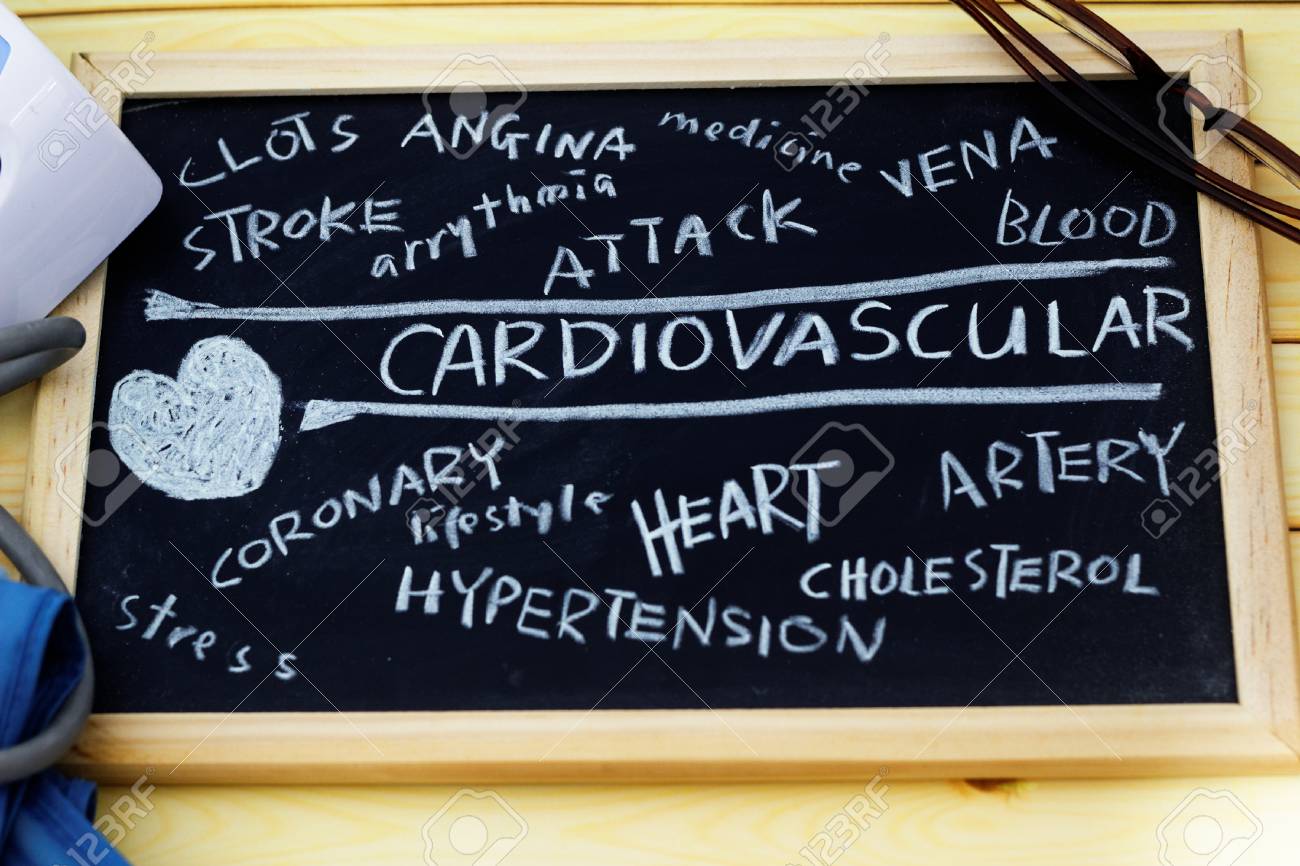 CLOTS ANGINA medicine VENA
STROKE arrythmia ATTACK BLOOD
CARDIOVASCULAR
CORONARY lifestyle HEART ARTERY
stress HYPERTENSION CHOLESTEROL
123RF
123RF
123RF
123RF
123RF
123RF
123RF
123RF
123RF
123RF